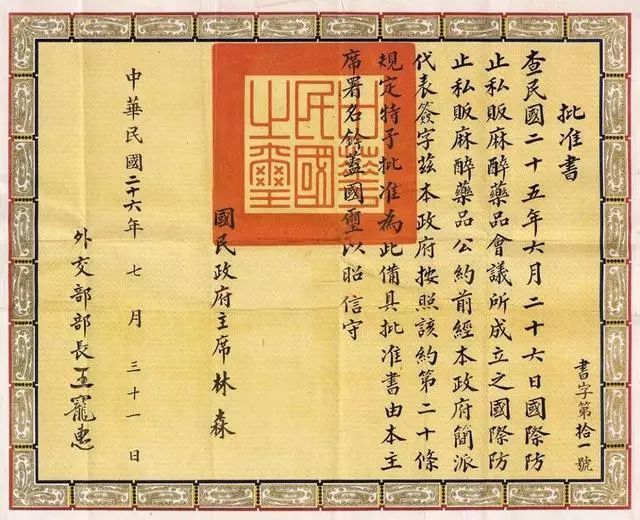 批准書
查民國二十五年六月二十六日國際防
止私販麻醉藥品會議所成立之國際防
止私販麻醉藥品公約前經本政府簡派
代表簽字茲本政府按照該約第二十條
規定特予批准為此備具批准書由本主
席署名鈐蓋國璽以昭信守
中華民國之璽
國民政府主席林森
中華民國二十六年七月三十一日
外交部部長王寵惠
書字第拾一號